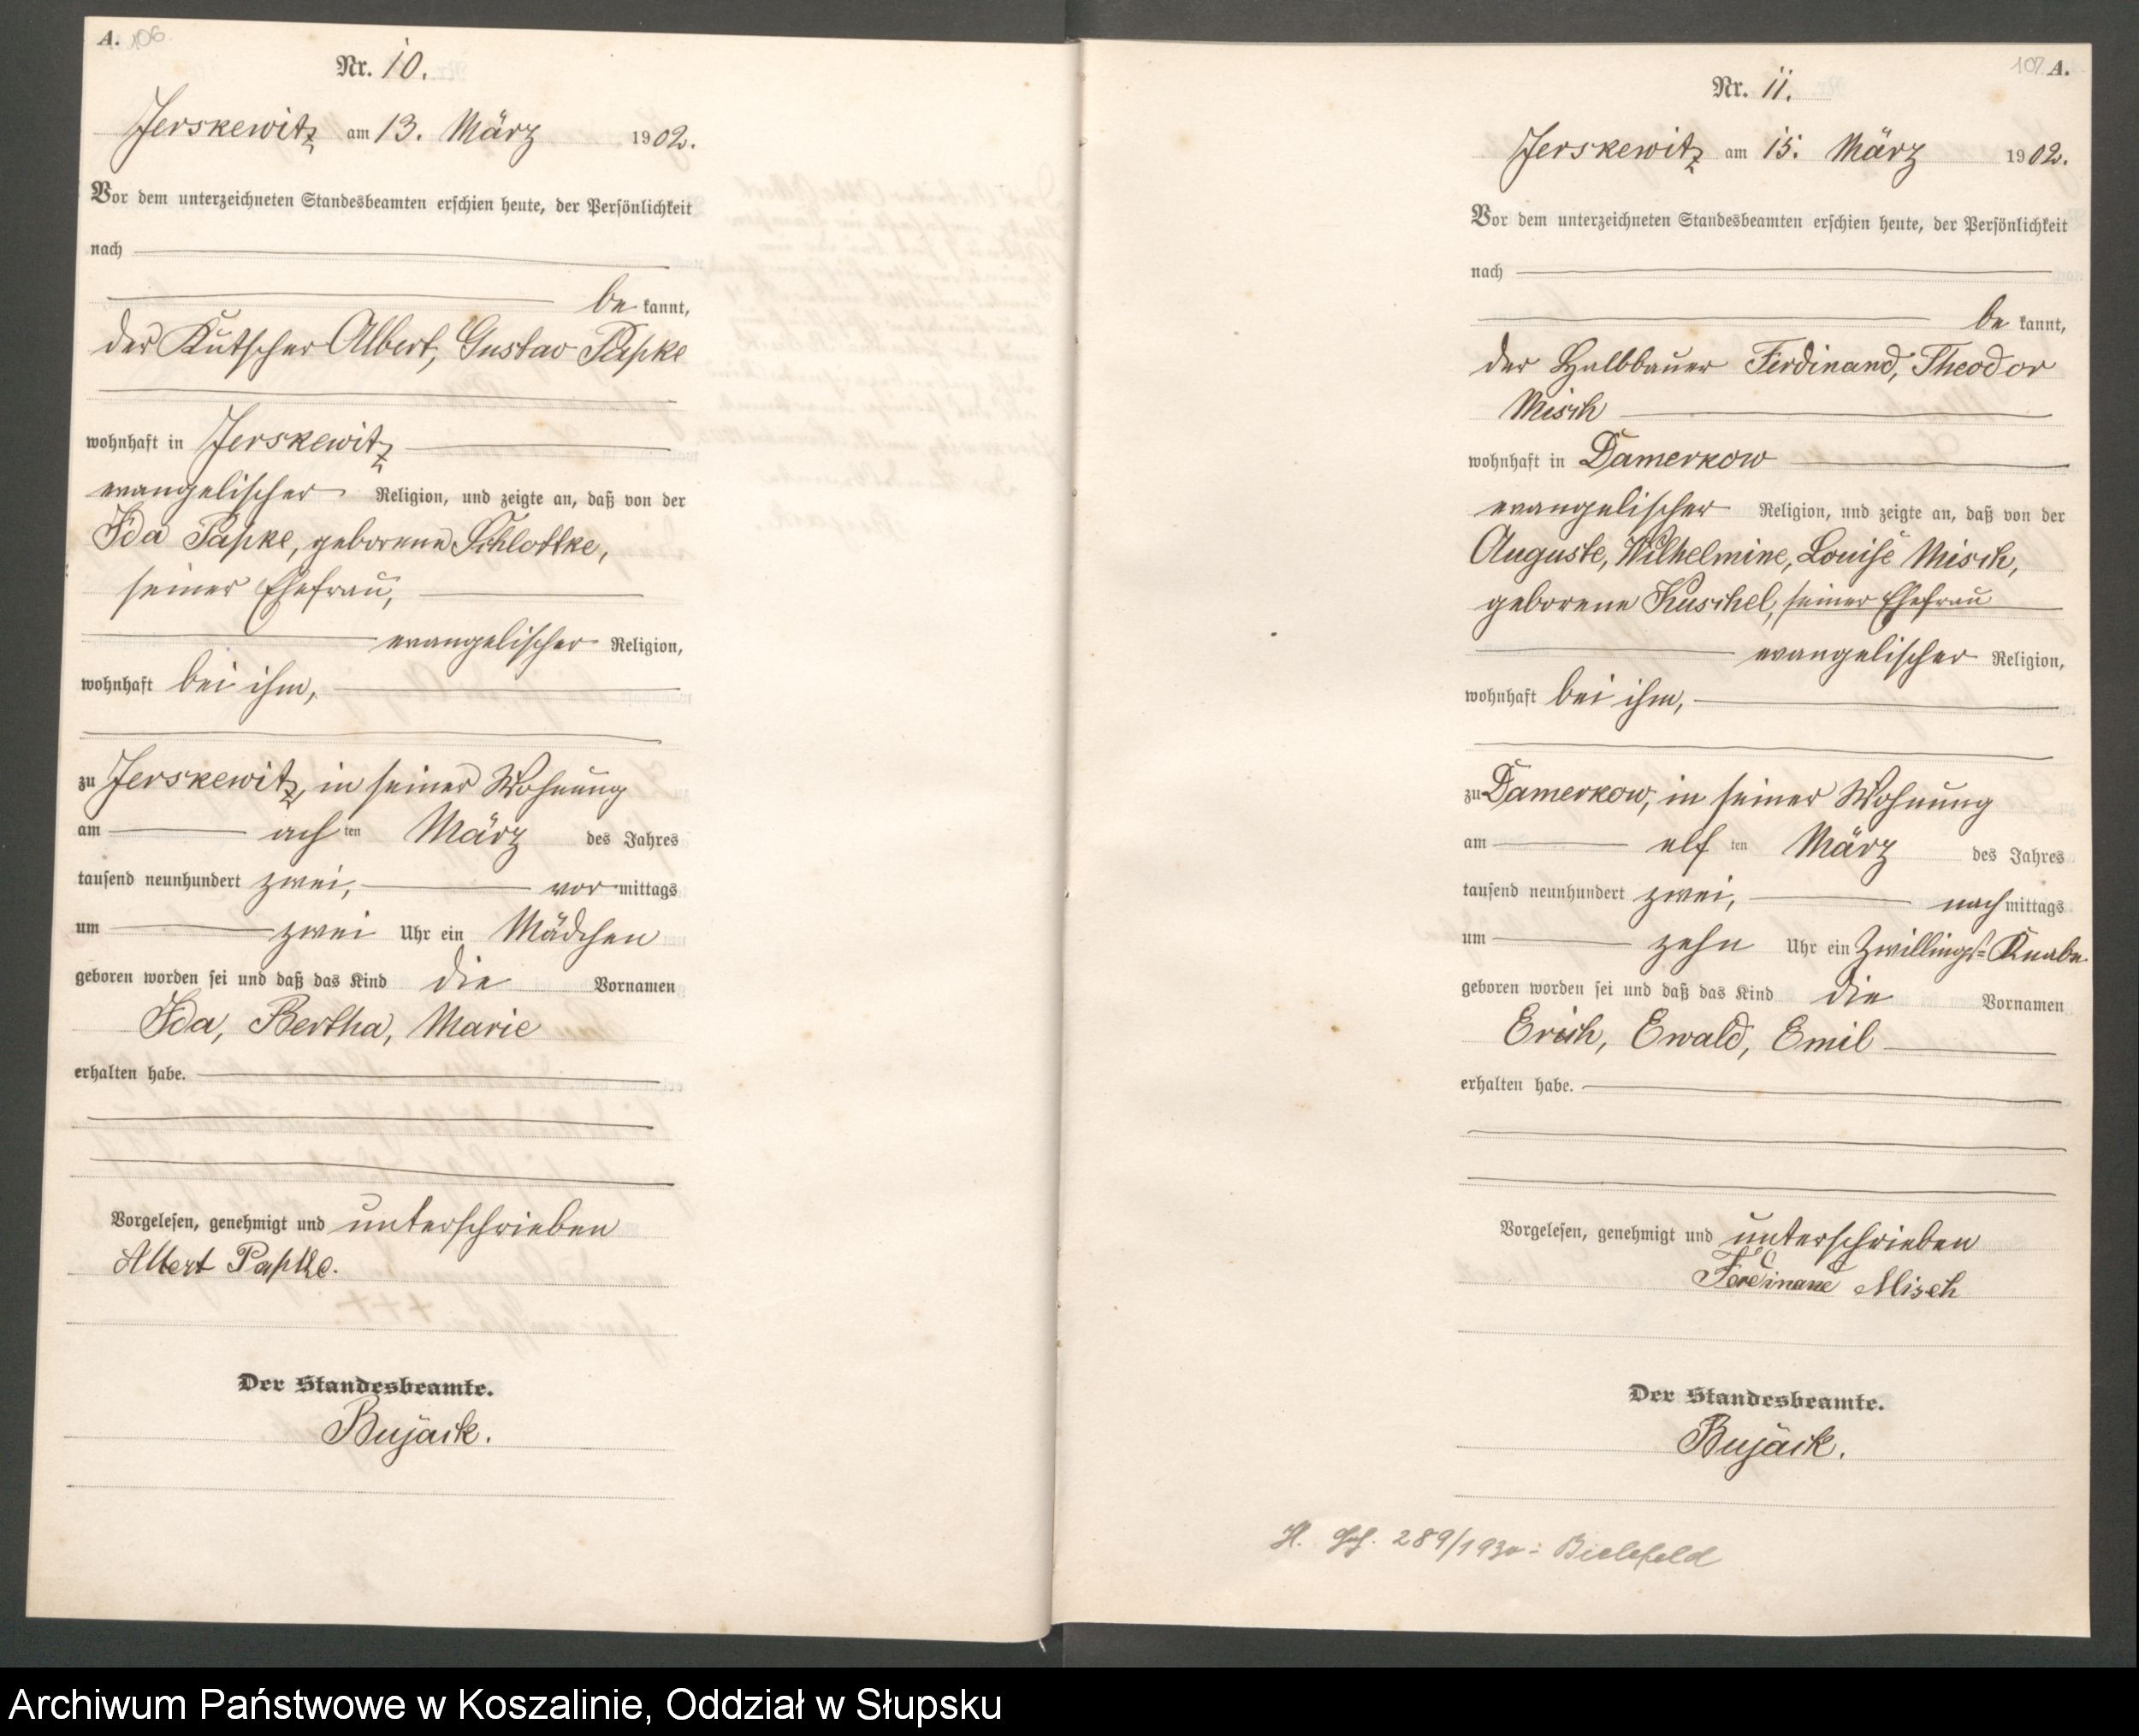 A. 106
Nr. 10.
Jerskewitz am 13. März 1902.
Vor dem unterzeichneten Standesbeamten erschien heute, der Persönlichkeit
nach
be kannt,
der Kutscher Albert, Gustav Papke
wohnhaft in Jerskewitz
evangelischer Religion, und zeigte an, daß von der
Ida Papke, geborene Schlottke,
seiner Ehefrau,
evangelischer Religion,
wohnhaft bei ihm,
zu Jerskewitz, in seiner Wohnung
am ach ten März des Jahres
tausend neunhundert zwei, vor mittags
um zwei Uhr ein Mädchen
geboren worden sei und daß das Kind die Vornamen
Ida, Bertha, Marie
erhalten habe.
Vorgelesen, genehmigt und unterschrieben
Albert Papke.
Der Standesbeamte.
Bujack.
107 A.
Nr. 11.
Jerskewitz am 15. März 1902.
Vor dem unterzeichneten Standesbeamten erschien heute, der Persönlichkeit
nach
be kannt,
der Halbbauer Ferdinand, Theodor
Misch
wohnhaft in Damerkow
evangelischer Religion, und zeigte an, daß von der
Auguste, Wilhelmine, Louise Misch,
geborene Kuschel, seiner Ehefrau
evangelischer Religion,
wohnhaft bei ihm,
zu Damerkow, in seiner Wohnung
am elf ten März des Jahres
tausend neunhundert zwei, nach mittags
um zehn Uhr ein Zwillings=Knabe
geboren worden sei und daß das Kind die Vornamen
Erich, Ewald, Emil
erhalten habe.
Vorgelesen, genehmigt und unterschrieben
Ferdinand Misch
Der Standesbeamte.
Bujack.
289/1930 - Bielefeld
Archiwum Państwowe w Koszalinie, Oddział w Słupsku